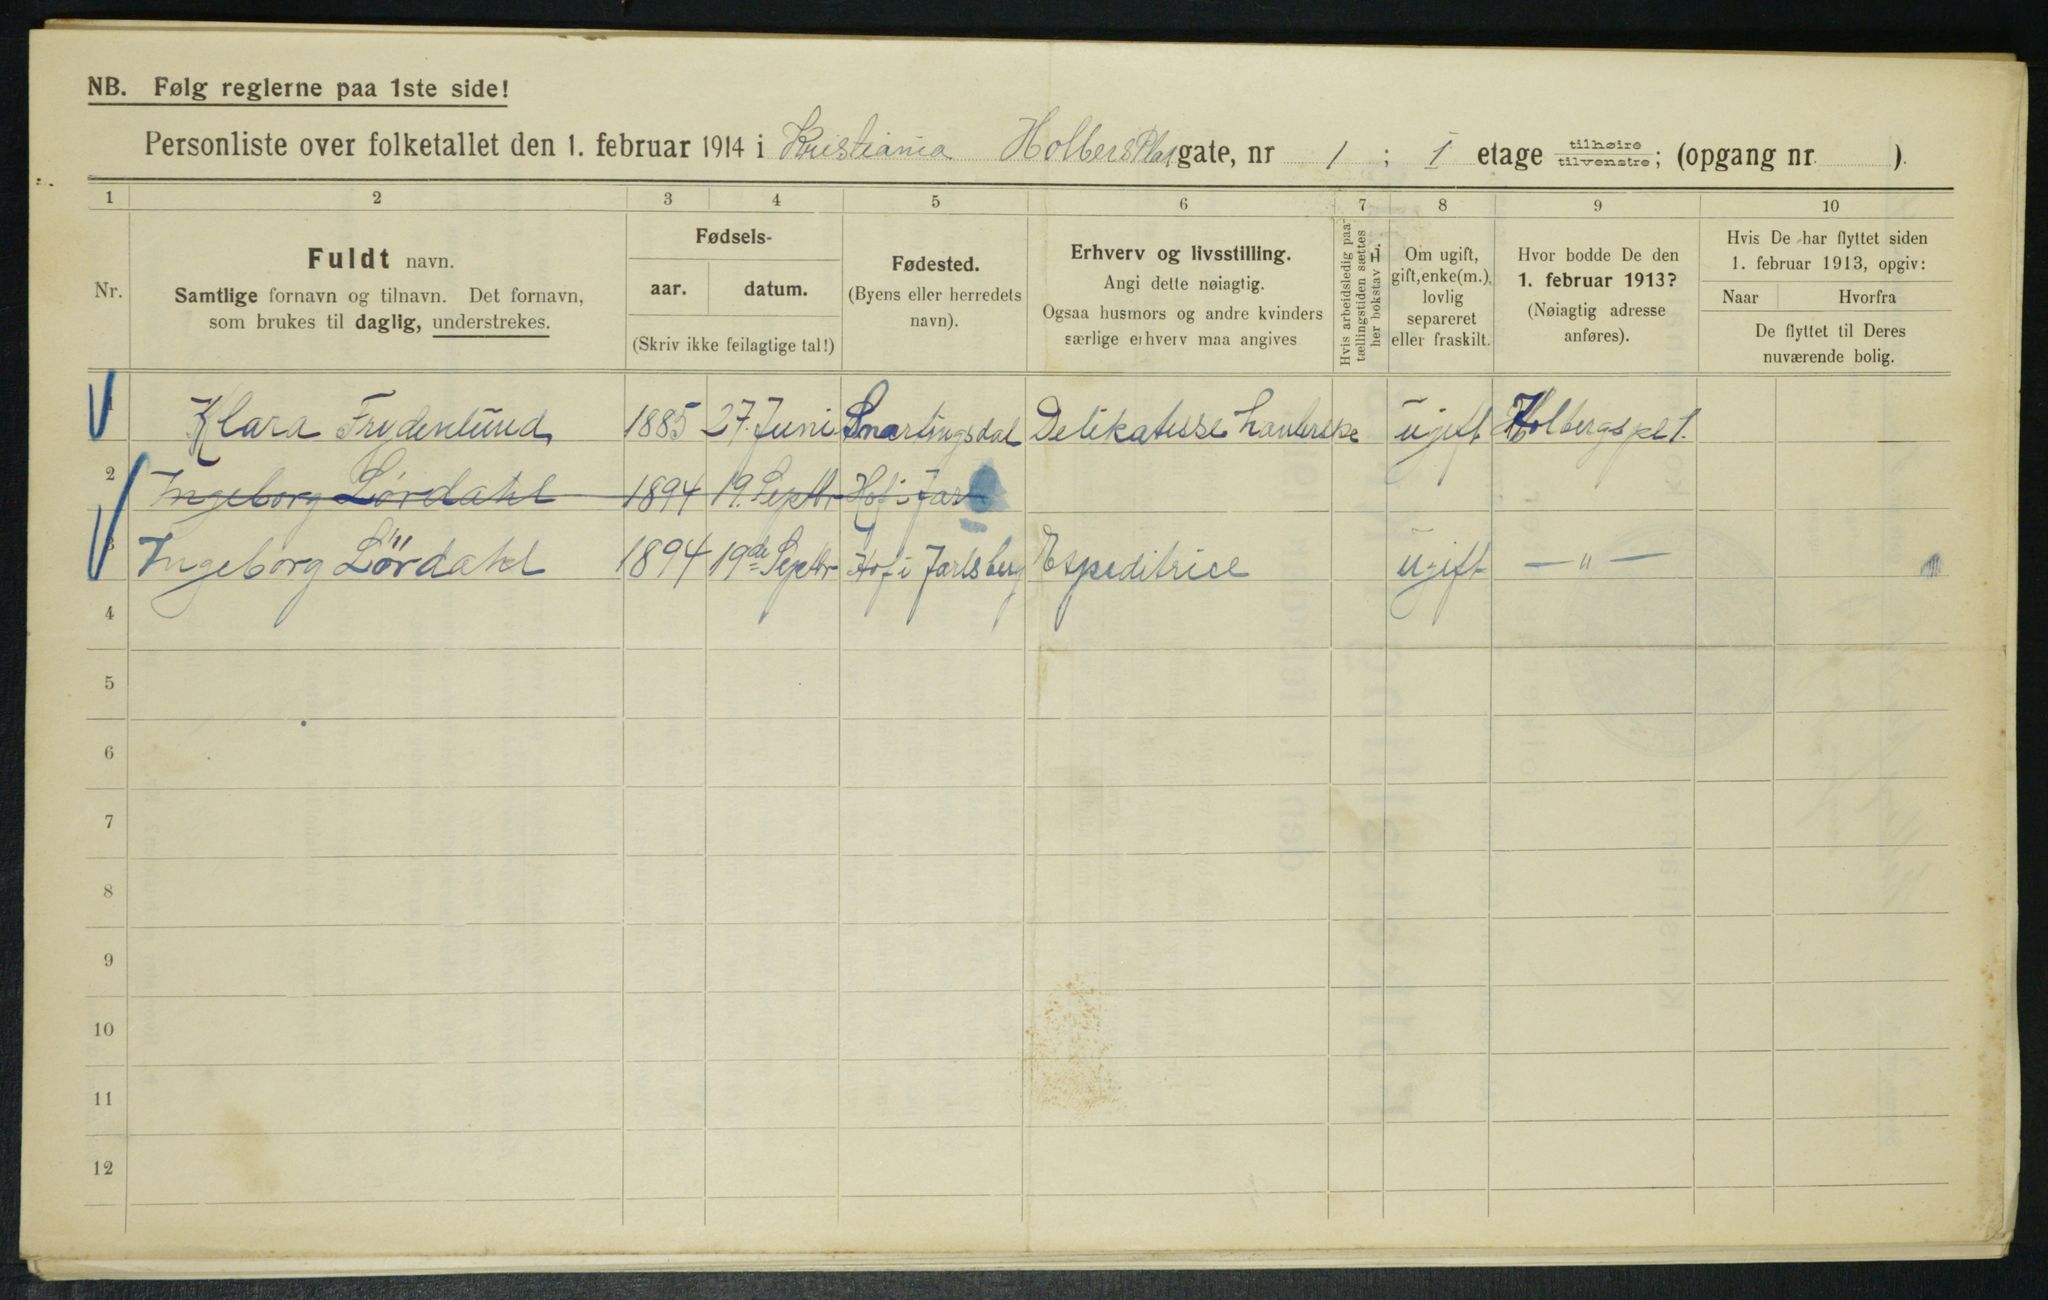 NB. Følg reglerne paa 1ste side!
Personliste over folketallet den 1. februar 1914 i Kristiania Holbers Plas gate, nr 1 ; 1 etage tilhøire tilvenstre; (opgang nr. ).
1 2 3 4 5 6 7 8 9 10
Nr.
Fuldt navn.
Samtlige fornavn og tilnavn. Det fornavn,
som brukes til daglig, understrekes.
Fødsels-
aar. datum.
(Skriv ikke feilagtige tal!)
Fødested.
(Byens eller herredets
navn).
Erhverv og livsstilling.
Angi dette nøiagtig.
Ogsaa husmors og andre kvinders
særlige erhverv maa angives
Hvis arbeidsledig paa
tællingstiden sættes
her bokstav L.
Om ugift,
gift, enke(m.),
lovlig
separeret
eller fraskilt.
Hvor bodde De den
1. februar 1913?
(Nøiagtig adresse
anføres).
Hvis De har flyttet siden
1. februar 1913, opgiv:
Naar Hvorfra
De flyttet til Deres
nuværende bolig.
1 Klara Frydenlund, 1885 27. Juni Snartingsdal Delikatesse ugift Holbergspl 1.
2 Ingeborg Lørdahl 1894 19. Septbr Hof i Jar
3 Ingeborg Lördahl 1894 19de Septbr Hof i Jarlsberg Expeditrice ugift — " —
4
5
6
7
8
9
10
11
12